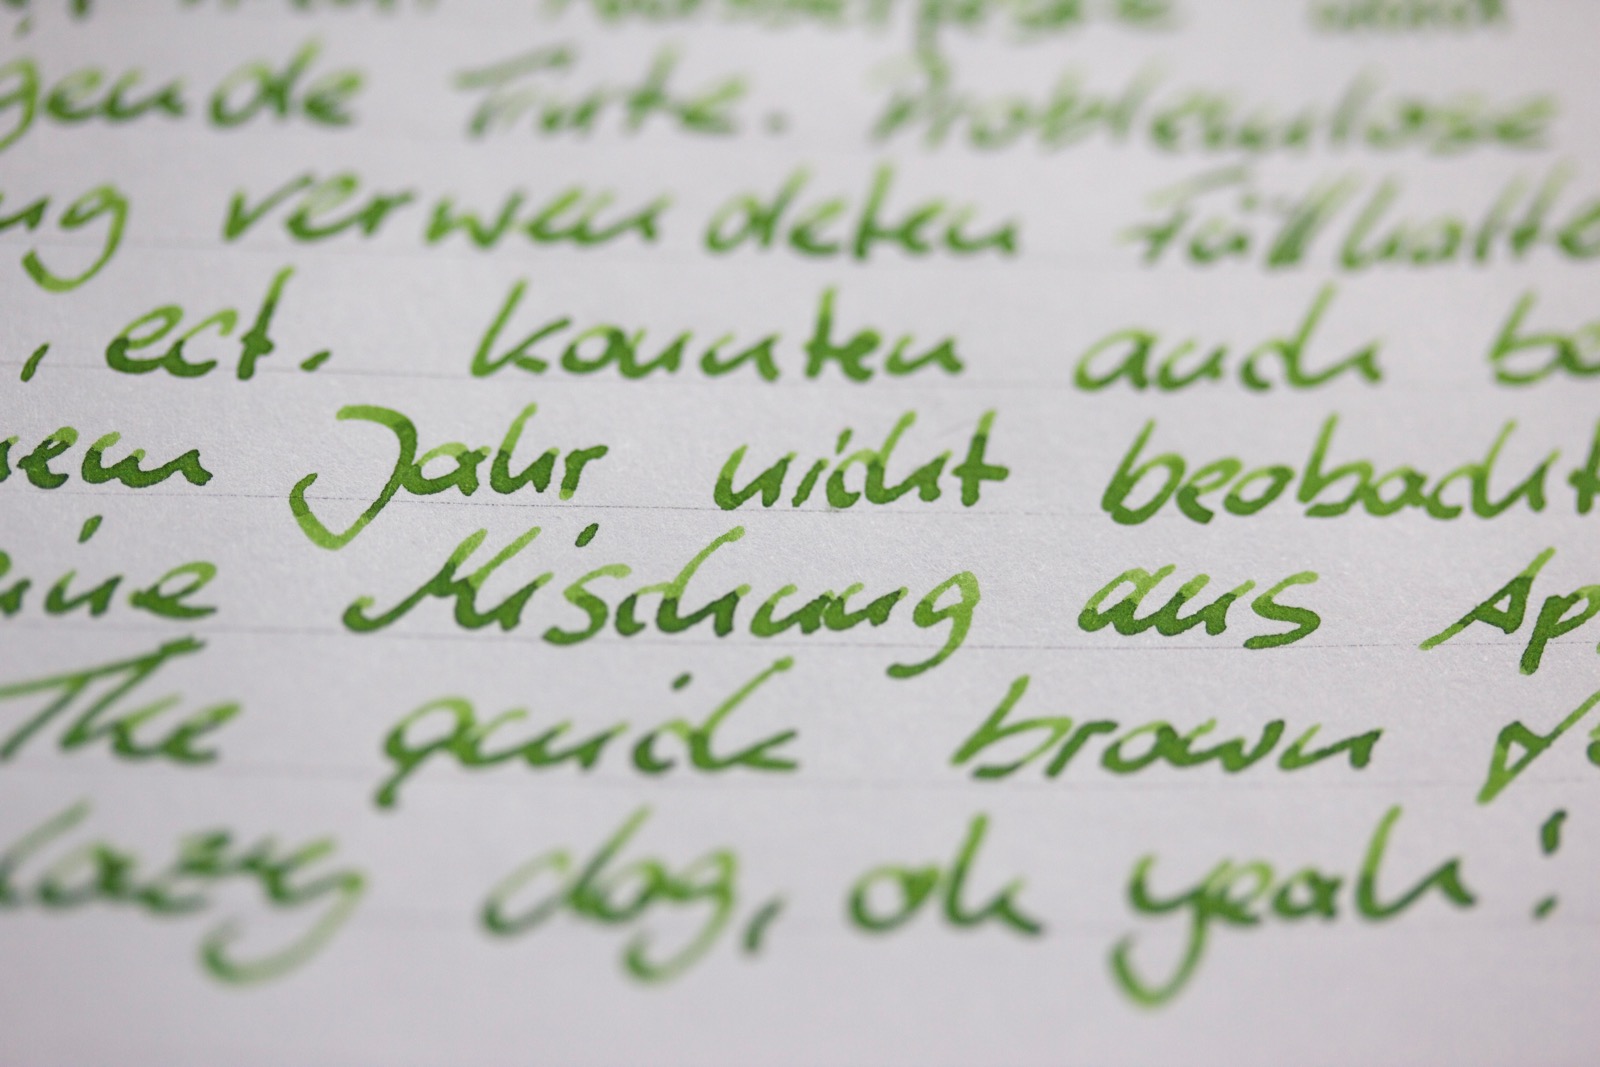 gende Tinte. Problemlose
ng verwendeten Füllhalte
, ect. konnten auch be
nem Jahr nicht beobacht
eine Mischung aus Ap
The quick brown fo
lazy dog, oh yeah!